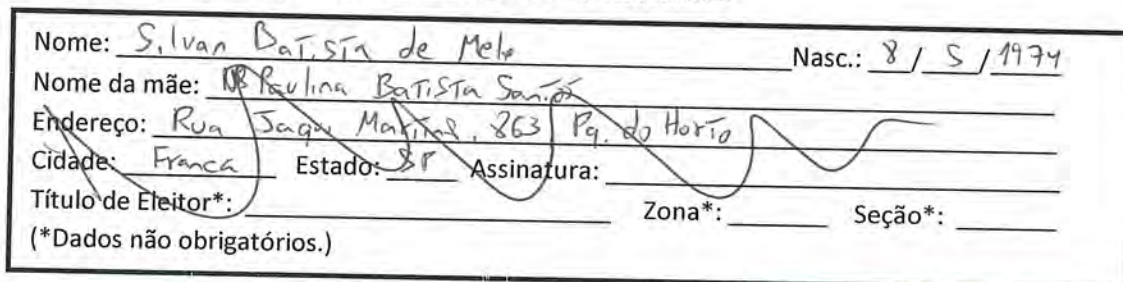 Nome: Silvan Batista de Melo Nasc.: 8 / 5 / 1974
Nome da mãe: Paulina Batista Santos
Endereço: Rua Martins, 863 Pq. do Horto
Cidade: Franca Estado: SP Assinatura:
Título de Eleitor*: Zona*: Seção*:
(*Dados não obrigatórios.)